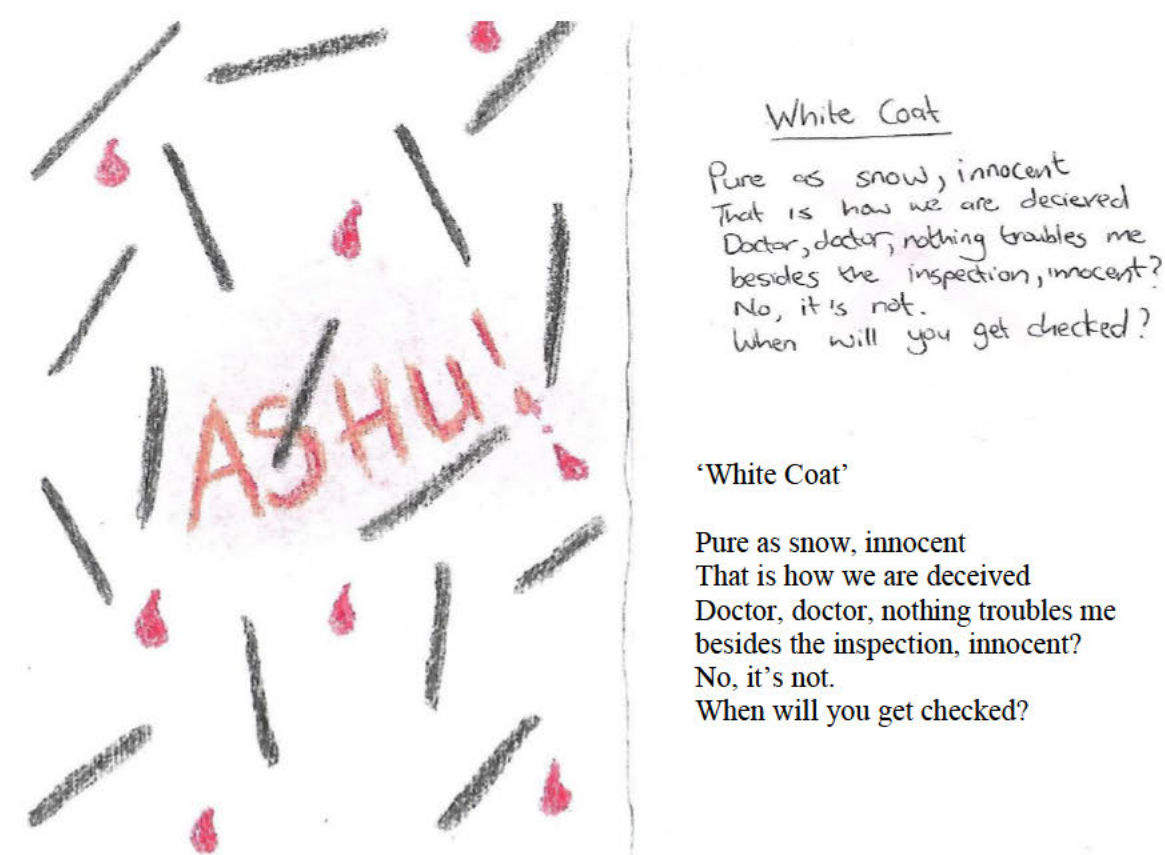 ASHU!
White Coat
Pure as snow, innocent
That is how we are decieved
Doctor, doctor, nothing troubles me
besides the inspection, innocent?
No, it's not.
When will you get checked?
‘White Coat’
Pure as snow, innocent
That is how we are deceived
Doctor, doctor, nothing troubles me
besides the inspection, innocent?
No, it’s not.
When will you get checked?